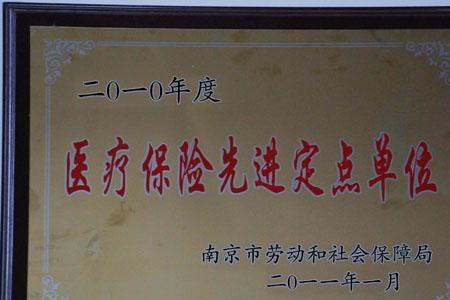 二〇一〇年度
医疗保险先进定点单位
南京市劳动和社会保障局
二〇一一年一月